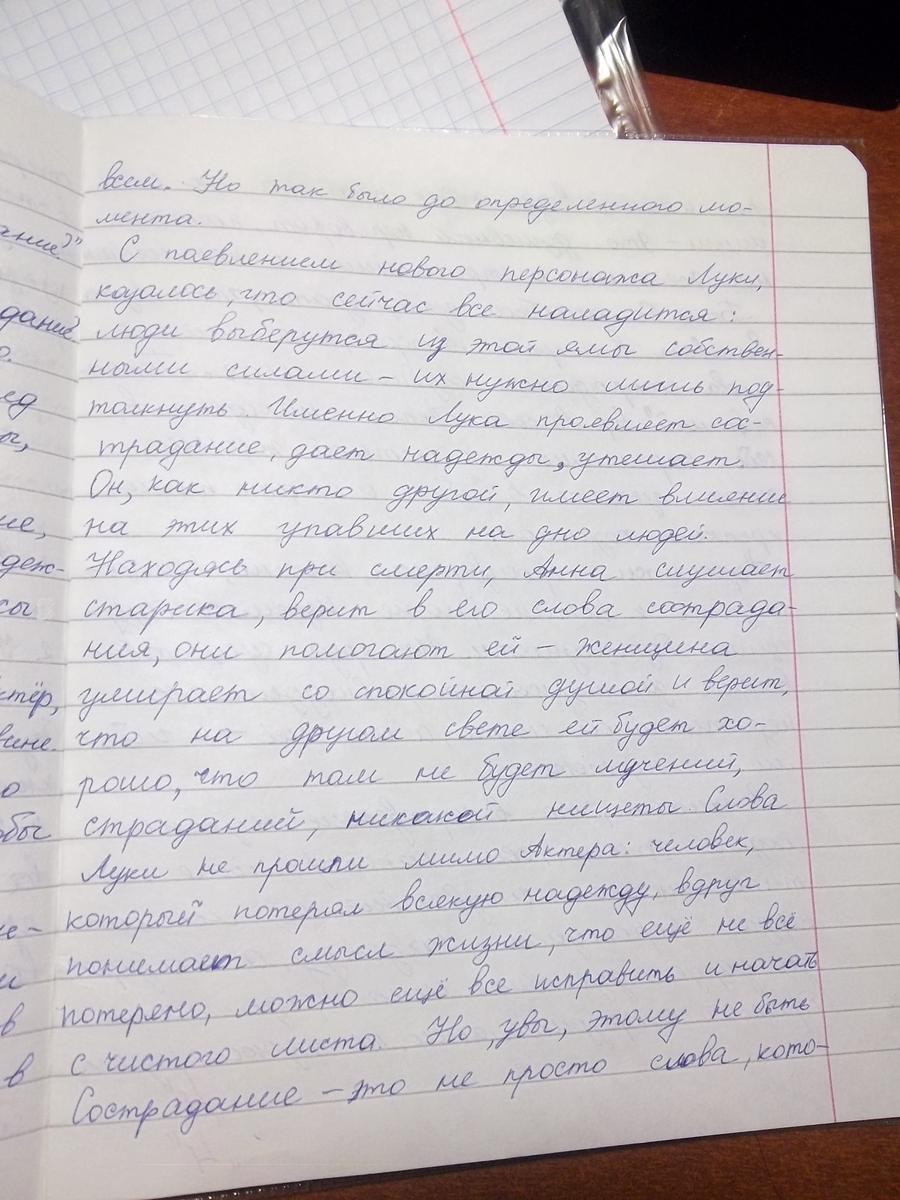 всем. Но так было до определенного мо-
мента.
С паевлением нового персонажа Луки,
казалось, что сейчас все наладится:
люди выберутся из этой ямы собствен-
ными силами – их нужно лишь под-
толкнуть Именно Лука проевляет сос-
традание, дает надежды, утешает
Он, как никто другой, имеет влияние
на этих упавших на дно людей.
Находясь при смерти, Анна слушает
старика, верит в его слова сострада-
ния, они помогают ей – женщина
умирает со спокойной душой и верит,
что на другом свете ей будет хо-
рошо, что там не будет мучений,
страданий, никакой нищеты Слова
Луки не прошли мимо Актера: человек,
который потерял всякую надежду, вдруг
понимает смысл жизни, что ещё не всё
потеряно, можно ещё все исправить и начать
с чистого листа. Но, увы, этому не быть
Сострадание – это не просто слова, кото-
ание?"
дание
о.
ед
ы,
ие,
деж-
сы
ктёр,
вине
о
обы
не-
и
в
в